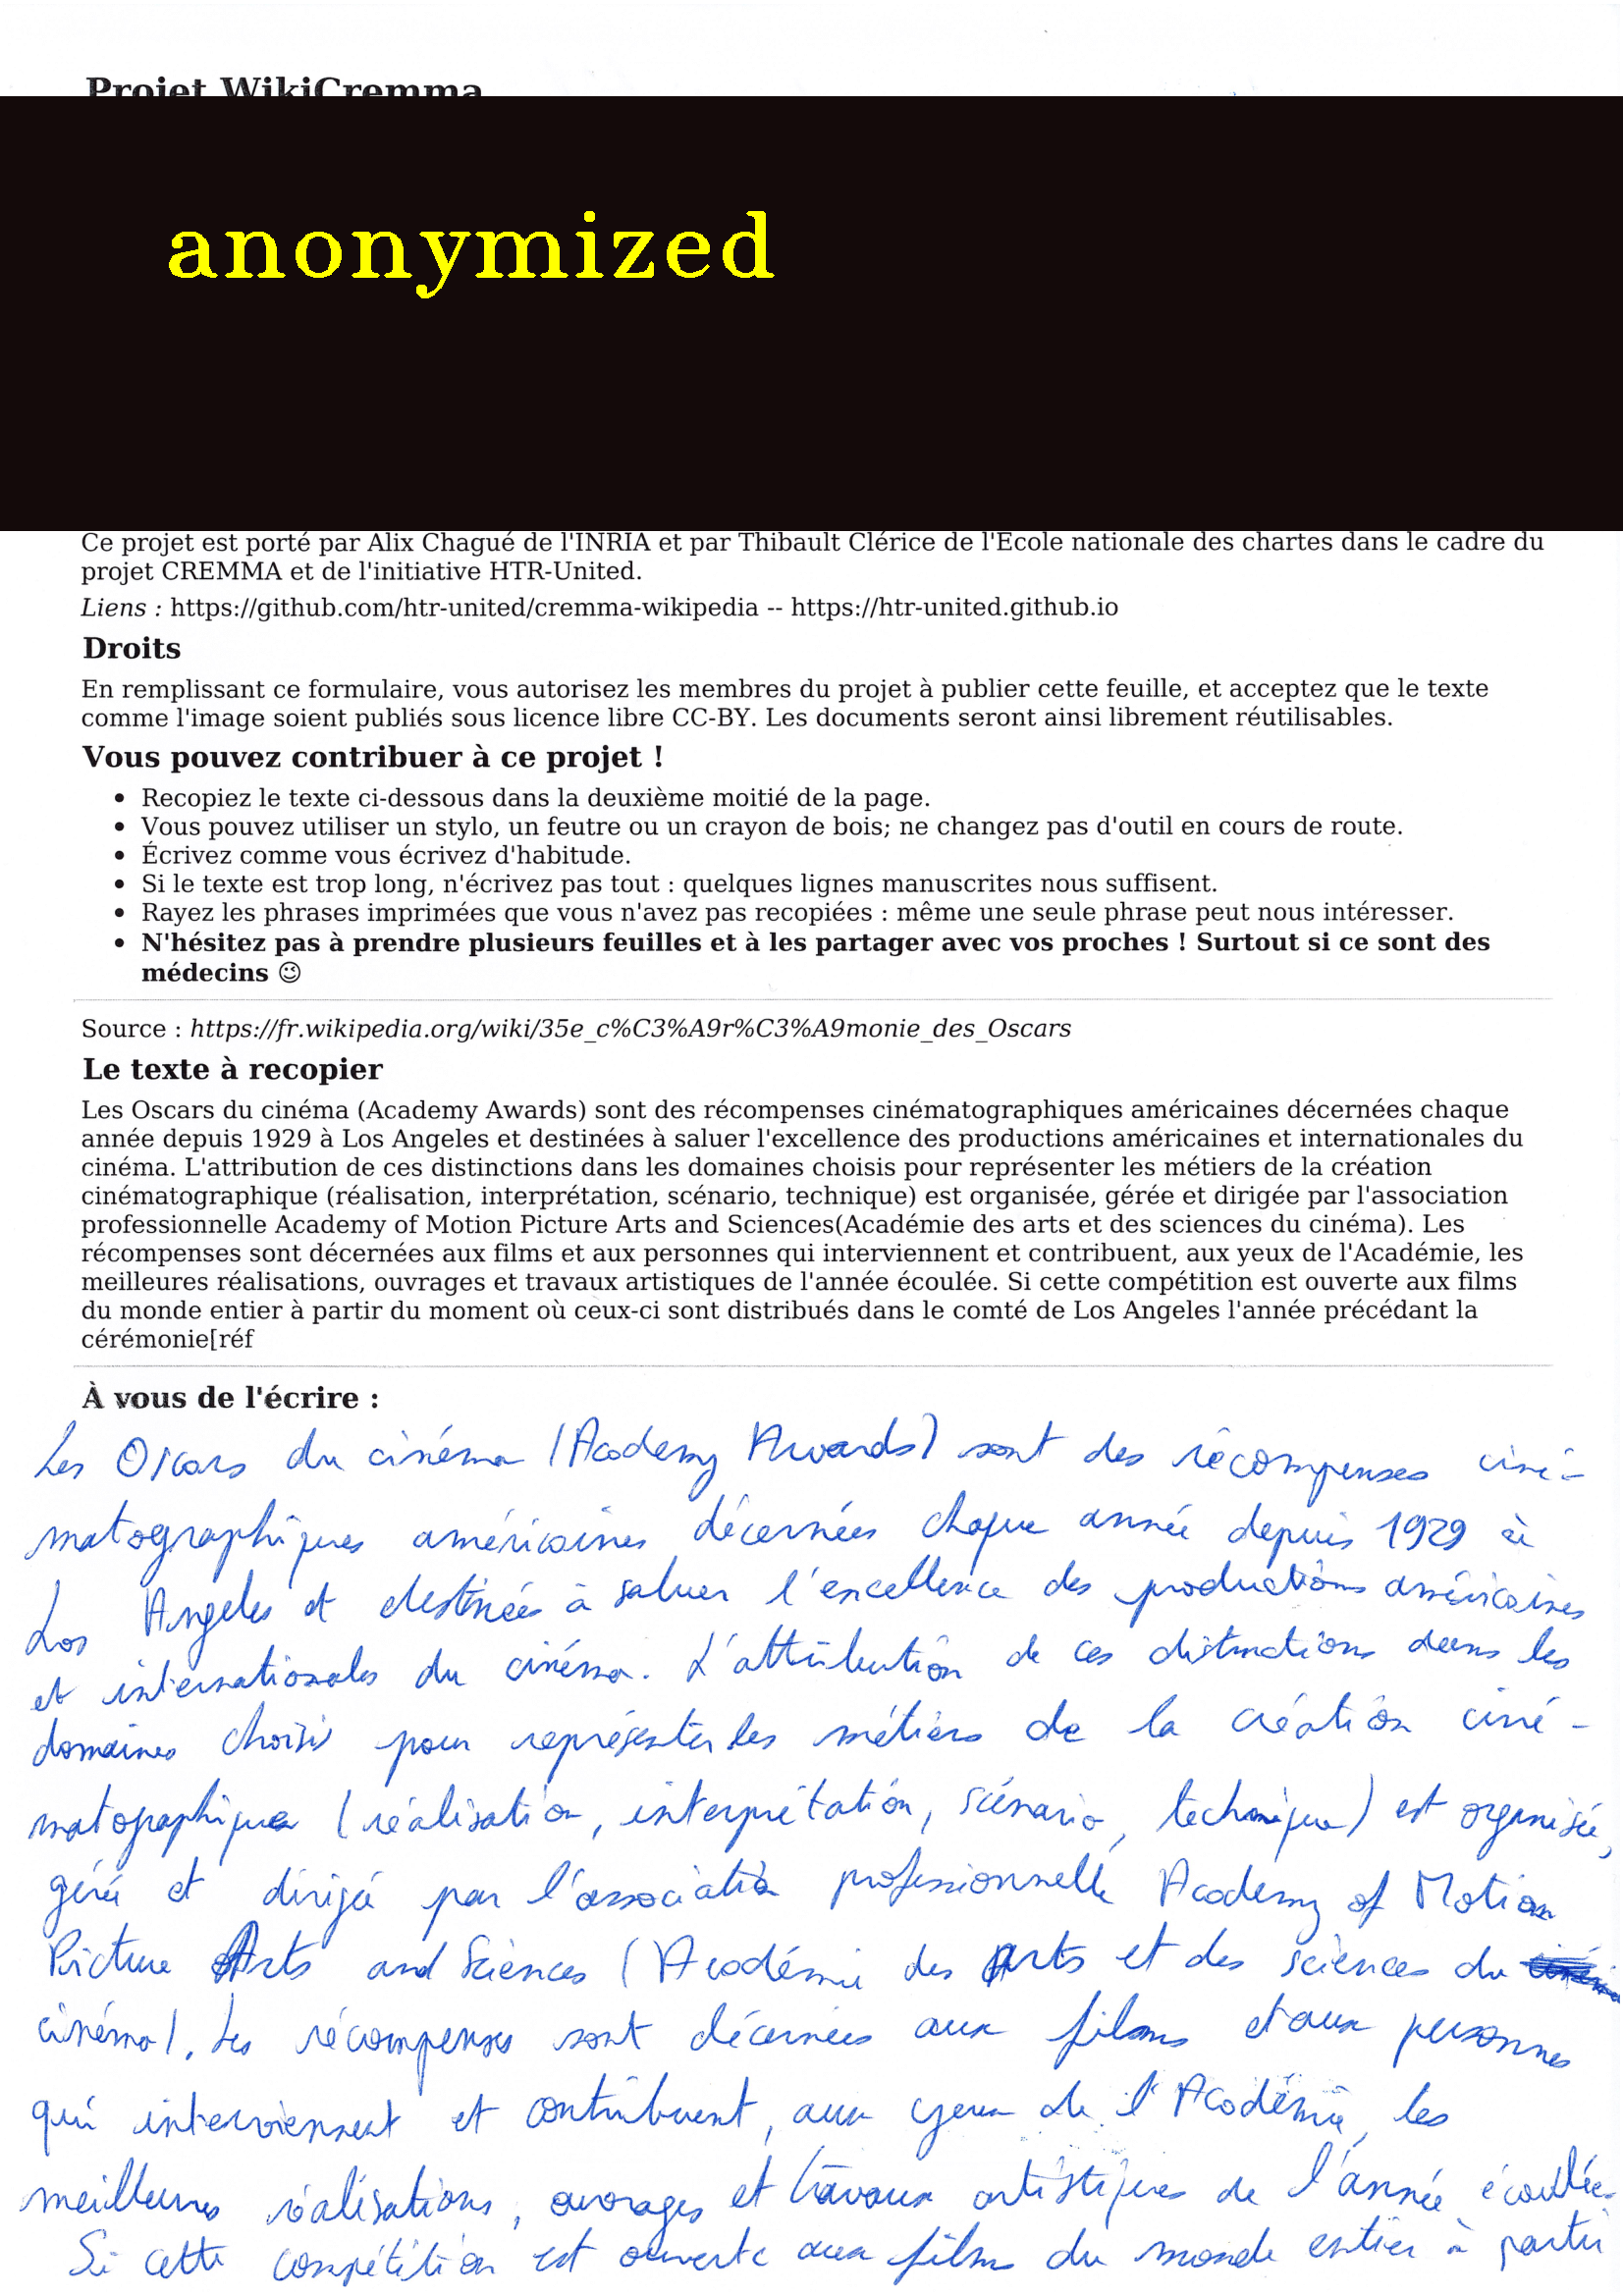 Projet WikiCremma
anonymized
Ce projet est porté par Alix Chagué de l'INRIA et par Thibault Clérice de l'Ecole nationale des chartes dans le cadre du
projet CREMMA et de l'initiative HTR-United.
Liens : https://github.com/htr-united/cremma-wikipedia -- https://htr-united.github.io
Droits
En remplissant ce formulaire, vous autorisez les membres du projet à publier cette feuille, et acceptez que le texte
comme l'image soient publiés sous licence libre CC-BY. Les documents seront ainsi librement réutilisables.
Vous pouvez contribuer à ce projet !
• Recopiez le texte ci-dessous dans la deuxième moitié de la page.
• Vous pouvez utiliser un stylo, un feutre ou un crayon de bois; ne changez pas d'outil en cours de route.
• Écrivez comme vous écrivez d'habitude.
• Si le texte est trop long, n'écrivez pas tout : quelques lignes manuscrites nous suffisent.
• Rayez les phrases imprimées que vous n'avez pas recopiées : même une seule phrase peut nous intéresser.
• N'hésitez pas à prendre plusieurs feuilles et à les partager avec vos proches ! Surtout si ce sont des
médecins 😉
Source : https://fr.wikipedia.org/wiki/35e_c%C3%A9r%C3%A9monie_des_Oscars
Le texte à recopier
Les Oscars du cinéma (Academy Awards) sont des récompenses cinématographiques américaines décernées chaque
année depuis 1929 à Los Angeles et destinées à saluer l'excellence des productions américaines et internationales du
cinéma. L'attribution de ces distinctions dans les domaines choisis pour représenter les métiers de la création
cinématographique (réalisation, interprétation, scénario, technique) est organisée, gérée et dirigée par l'association
professionnelle Academy of Motion Picture Arts and Sciences(Académie des arts et des sciences du cinéma). Les
récompenses sont décernées aux films et aux personnes qui interviennent et contribuent, aux yeux de l'Académie, les
meilleures réalisations, ouvrages et travaux artistiques de l'année écoulée. Si cette compétition est ouverte aux films
du monde entier à partir du moment où ceux-ci sont distribués dans le comté de Los Angeles l'année précédant la
cérémonie[réf
À vous de l'écrire :
Les Oscars du cinéma (Academy Awards) sont des récompenses ciné-
matographiques américaines décernées chaque année depuis 1929 à
Los Angeles et destinées à saluer l'excellence des productions américaines
et internationales du cinéma. L'attribution de ces distinctions dans les
domaines choisis pour représenter les métiers de la création ciné-
matographique (réalisation, interprétation, scénario, technique) est organisée,
gérée et dirigée par l'association professionnelle Academy of Motion
Picture Arts and Sciences (Académie des Arts et des sciences du
cinéma). Les récompenses sont décernées aux films et aux personnes
qui interviennent et contribuent, aux yeux de l'Académie, les
meilleures réalisations, ouvrages et travaux artistiques de l'année écoulée.
Si cette compétition est ouverte aux films du monde entier à partir